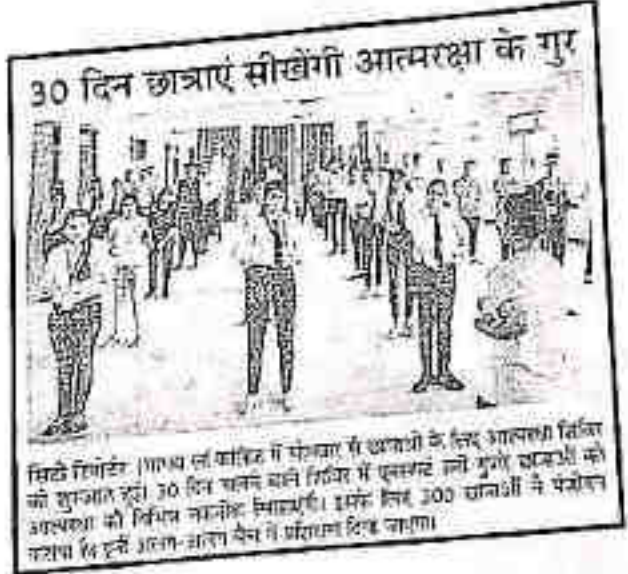 30 दिन छात्राएं सीखेंगी आत्मरक्षा के गुर
सिटी रिपोर्टर । लॉ कॉलेज में सोमवार से छात्राओं के लिए आत्मरक्षा शिविर
की शुरुआत हुई। 30 दिन चलने वाले शिविर में एक्सपर्ट छात्राओं को
आत्मरक्षा की विभिन्न तकनीक सिखाएंगी। इसके लिए 300 छात्राओं ने पंजीयन
कराया है। इन्हें अलग-अलग बैच में प्रशिक्षण दिया जाएगा।